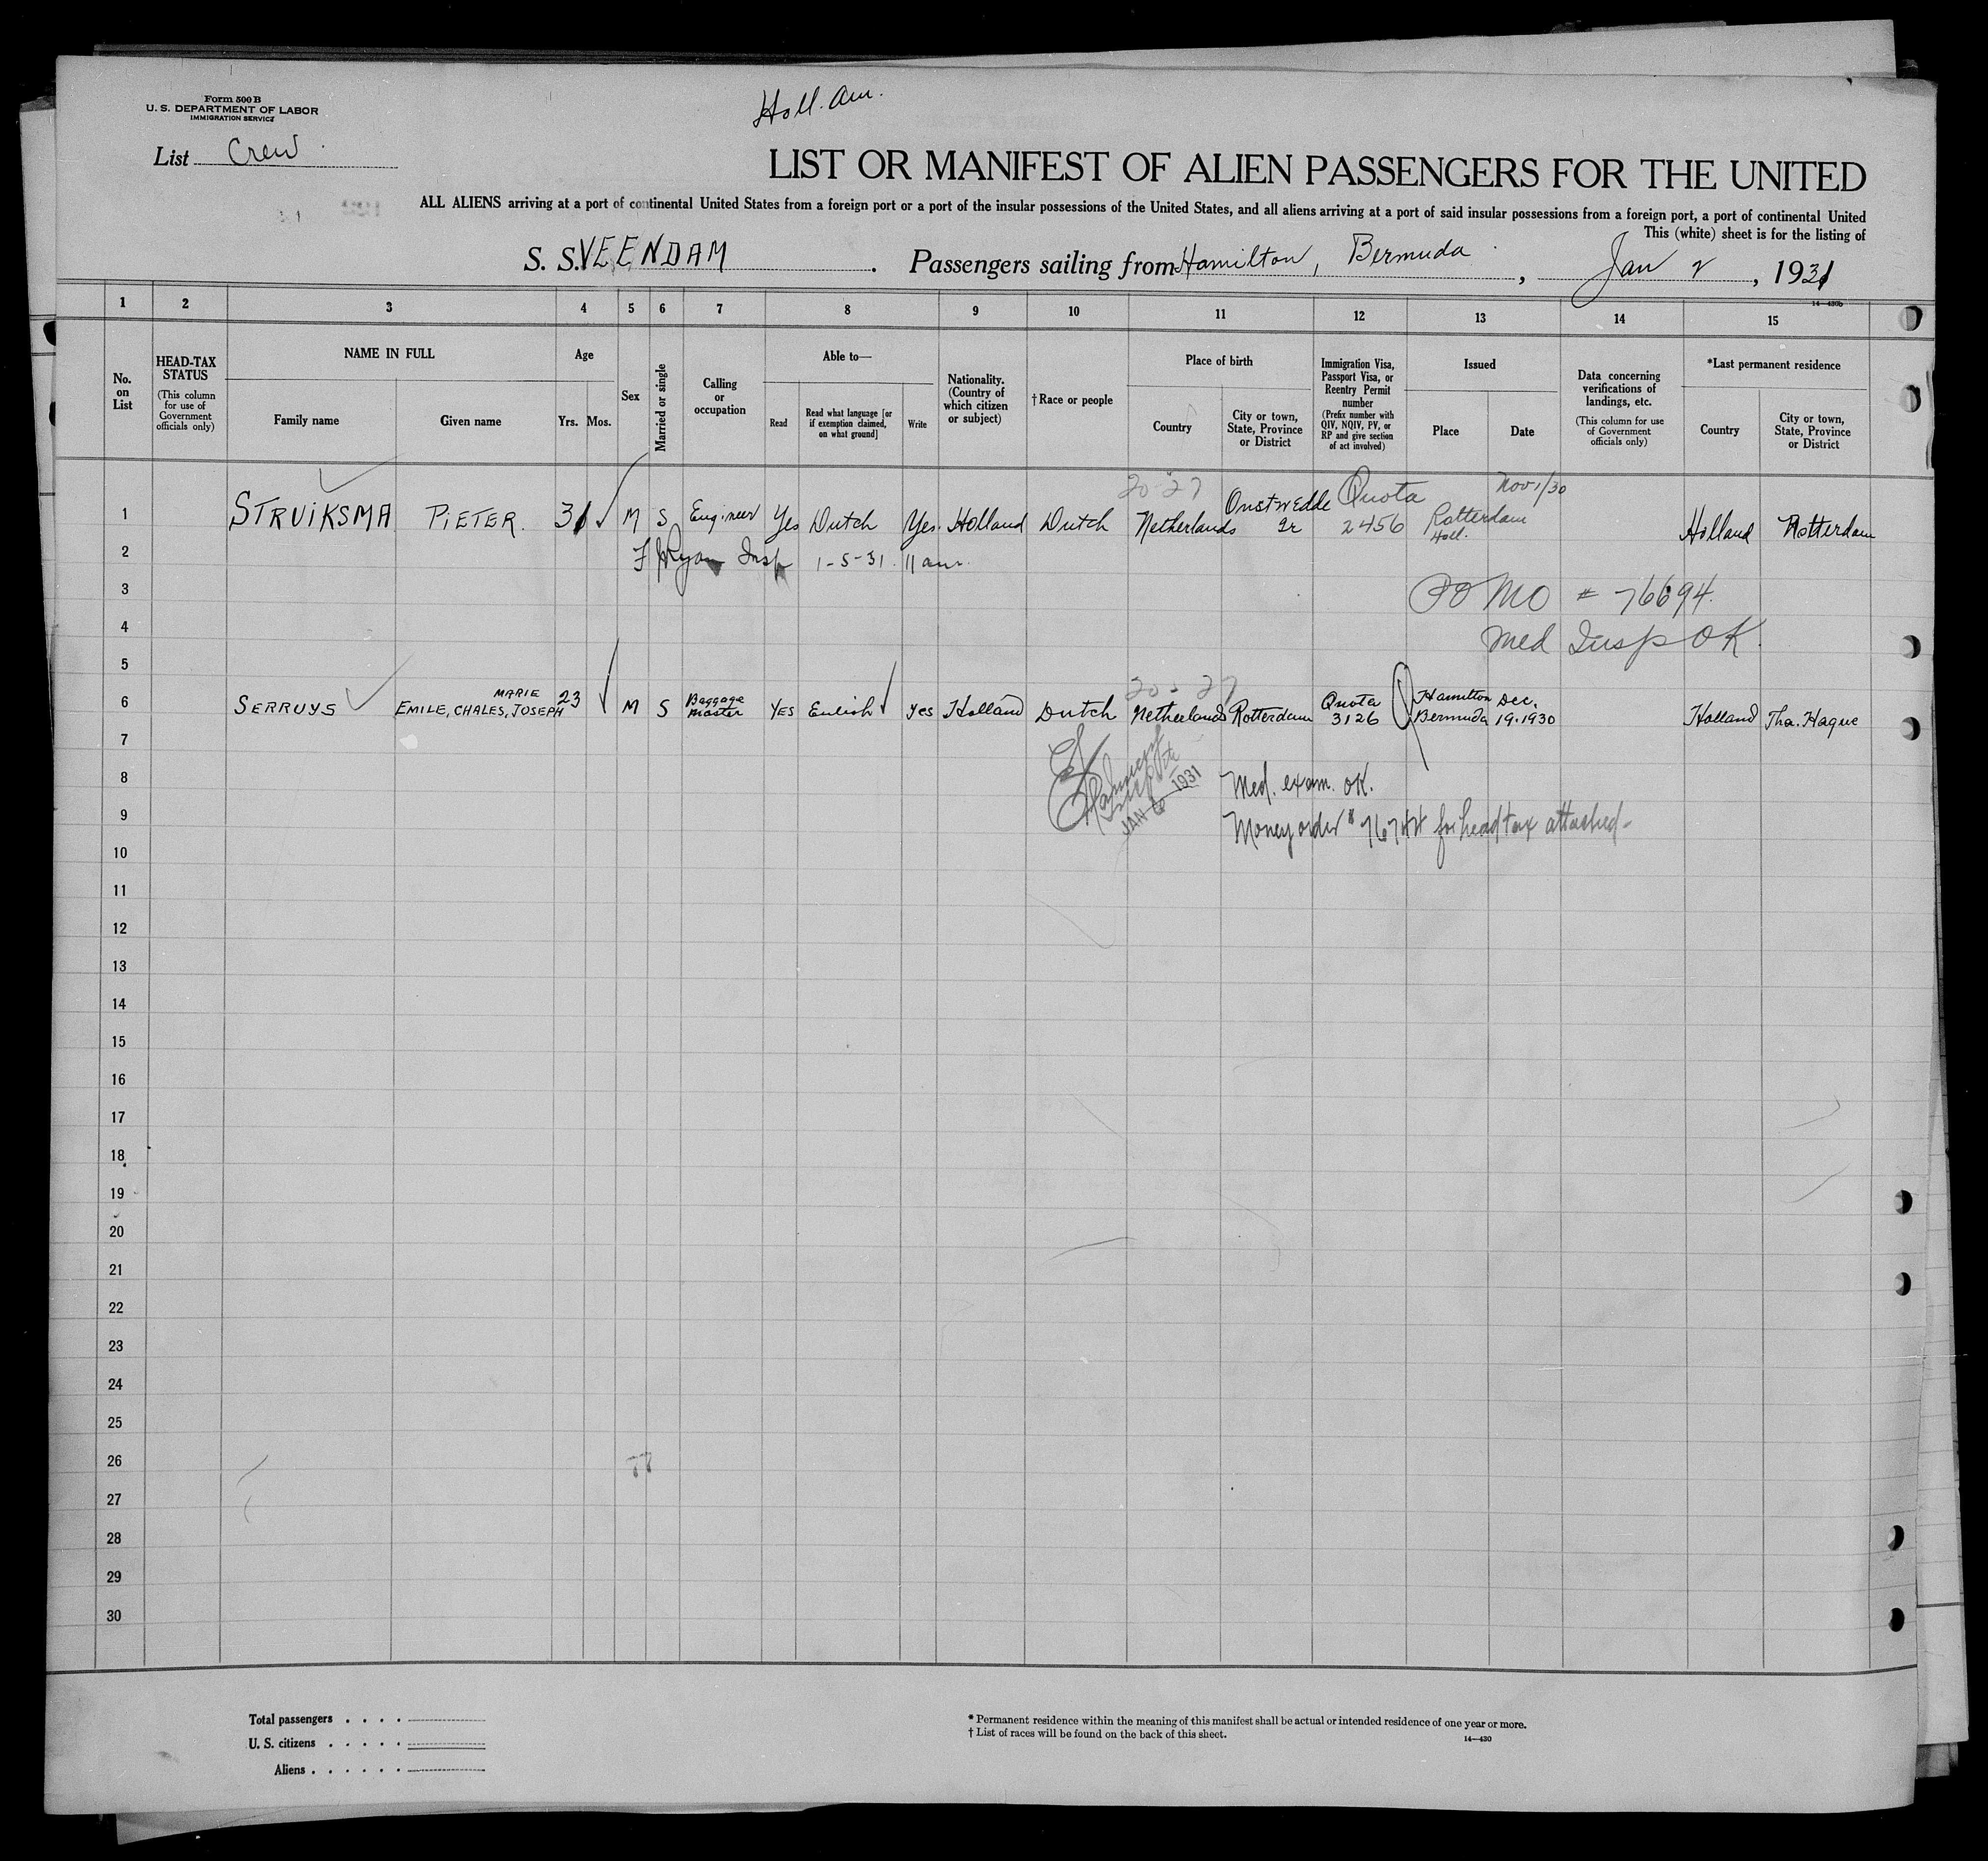 Form 500 B
U. S. DEPARTMENT OF LABOR
IMMIGRATION SERVICE
Holl. Am.
List Crew.
LIST OR MANIFEST OF ALIEN PASSENGERS FOR THE UNITED
ALL ALIENS arriving at a port of continental United States from a foreign port or a port of the insular possessions of the United States, and all aliens arriving at a port of said insular possessions from a foreign port, a port of continental United
This (white) sheet is for the listing of
S. S. VEENDAM. Passengers sailing from Hamilton, Bermuda, Jan 2, 1931
14—430b
1 2 3 4 5 6 7 8 9 10 11 12 13 14 15
No. on List
HEAD-TAX STATUS (This column for use of Government officials only)
NAME IN FULL
Family name
Given name
Age
Yrs. Mos.
Sex
Married or single
Calling or occupation
Able to—
Read
Read what language [or if exemption claimed, on what ground]
Write
Nationality. (Country of which citizen or subject)
†Race or people
Place of birth
Country
City or town, State, Province or District
Immigration Visa, Passport Visa, or Reentry Permit number (Prefix number with QIV, NQIV, PV, or RP and give section of act involved)
Issued
Place
Date
Data concerning verifications of landings, etc. (This column for use of Government officials only)
*Last permanent residence
Country
City or town, State, Province or District
20-27 Nov 1/30
1 STRUIKSMA PIETER. 31 M S Engineer Yes Dutch Yes. Holland Dutch Netherlands Onstwedde Gr Quota 2456 Rotterdam Holl. Holland Rotterdam
2 F W Ryan Insp 1-5-31. 11 am.
3 PO MO # 76694.
4 Med Insp OK.
5
20-27
6 SERRUYS EMILE, CHALES, JOSEPH MARIE 23 M S Baggage master YES Enlish yes Holland Dutch Netherlands Rotterdam Quota 3126 Hamilton Bermuda Dec. 19.1930 Holland Tha. Hague
7
8 JAN 6 1931 Med. exam. OK.
9 Money order # 76744 for head tax attached-
10
11
12
13
14
15
16
17
18
19
20
21
22
23
24
25
26
27
28
29
30
Total passengers . . . .
U. S. citizens . . . . .
Aliens . . . . . .
* Permanent residence within the meaning of this manifest shall be actual or intended residence of one year or more.
† List of races will be found on the back of this sheet.
14—430